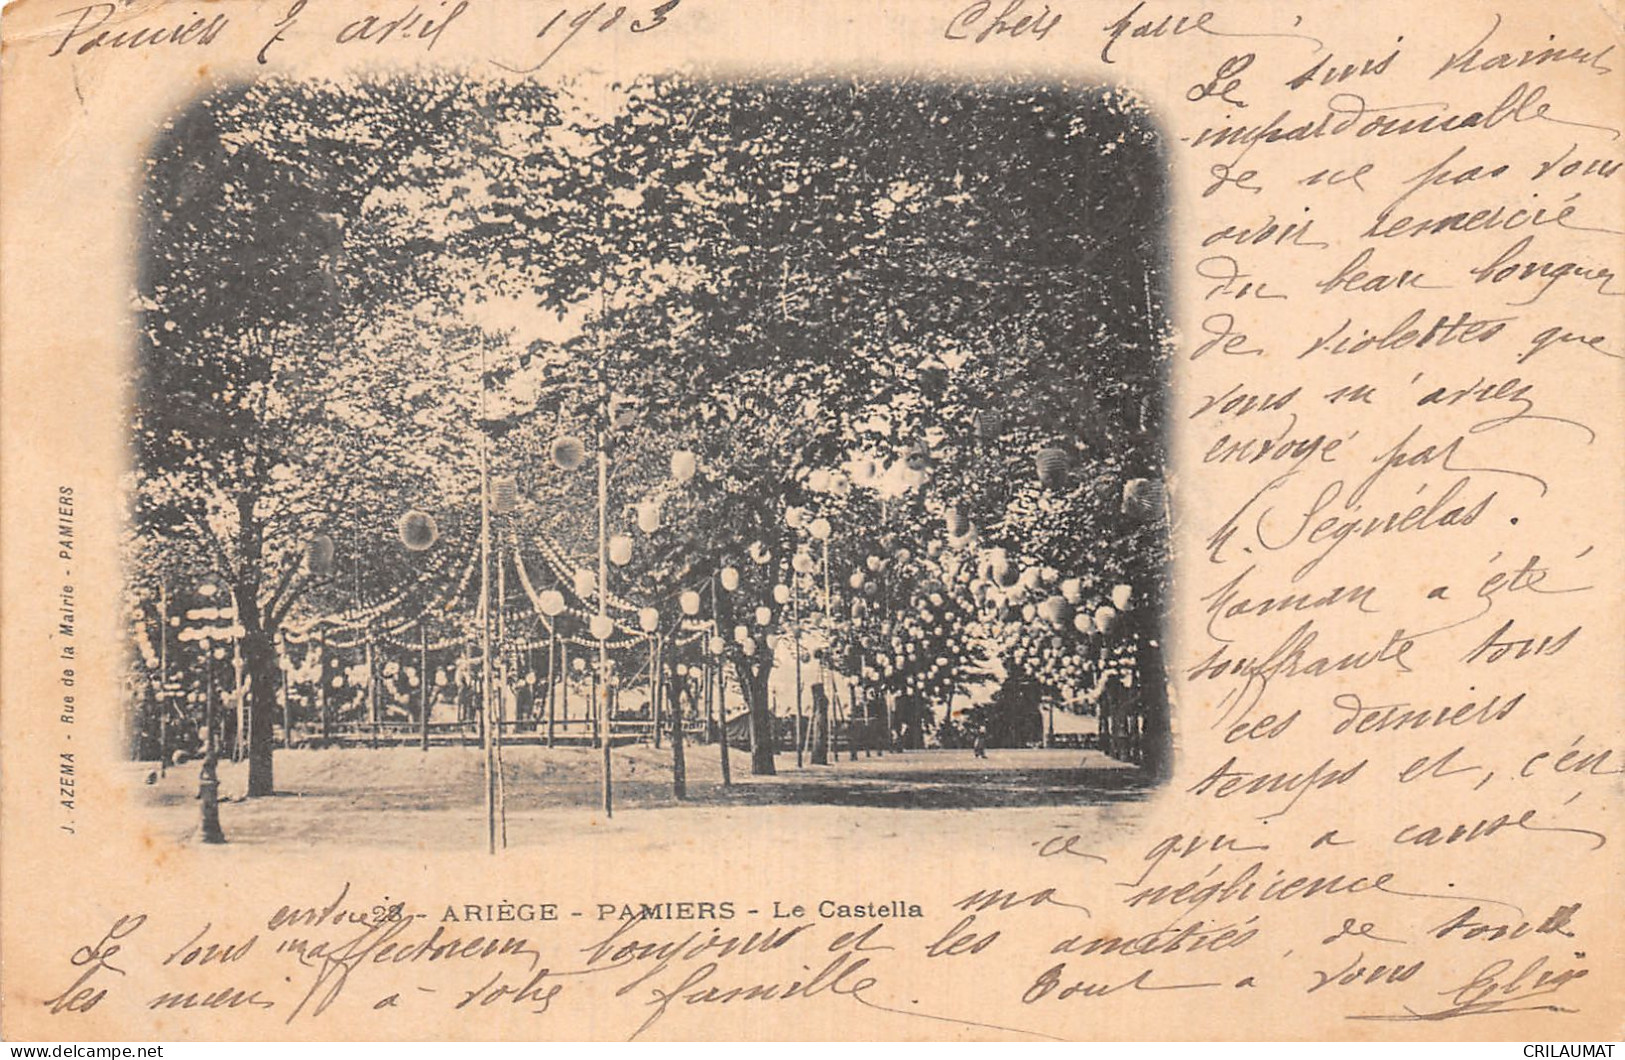 Pamiers 2 avril 1903
Chère Marie,
Je suis vraiment
impardonnable
de ne pas vous
avoir remercié
du beau bouquet
de violettes que
vous m'aviez
envoyé par
M. Séguélas.
Maman a été
souffrante tous
ces derniers
temps et, c'en
ce qui a causé
ma négligence.
28 - ARIÈGE - PAMIERS - Le Castella
envoie
Je vous affectueux bonjours et les amitiés, de tous
les miens à votre famille. Tout à vous
J. AZEMA - Rue de la Mairie - PAMIERS
CRILAUMAT